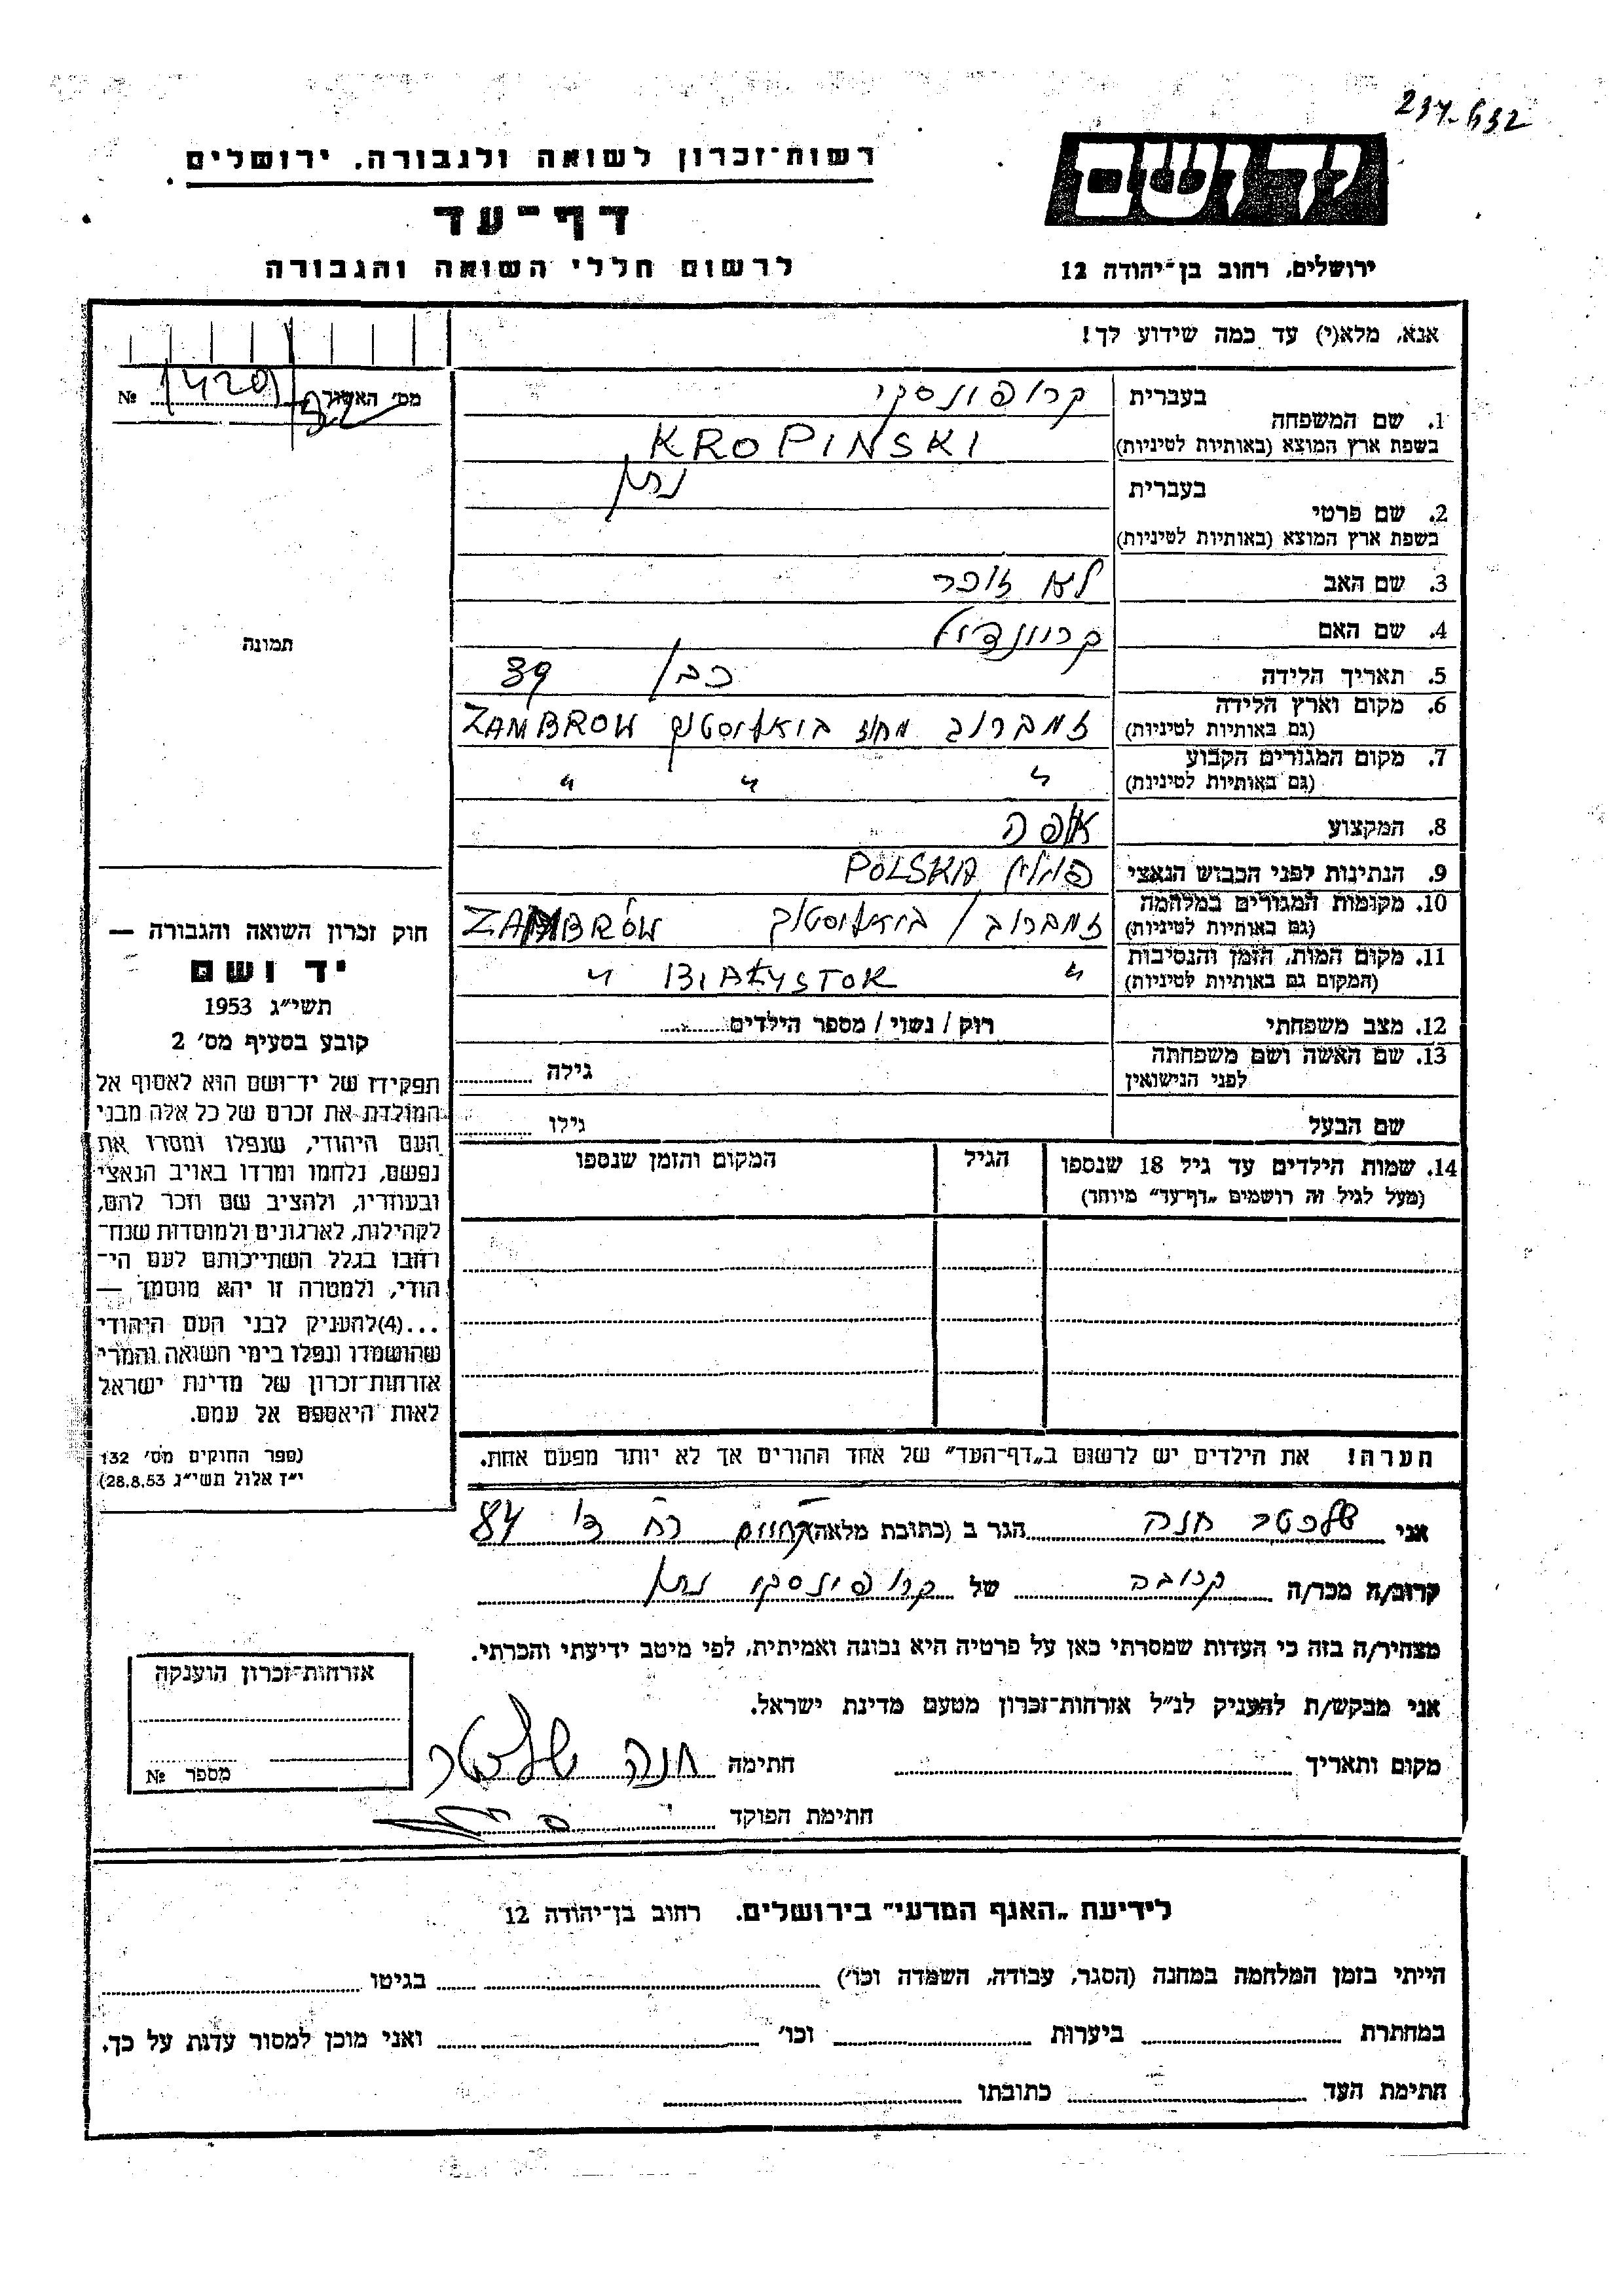 237-632
רשות־זכרון לשואה ולגבורה. ירושלים
דף־עד
לרשום חללי השואה והגבורה
יד ושם
ירושלים, רחוב בן־יהודה 12
אנא, מלא(י) עד כמה שידוע לך!
מס' האשור № 
1. שם המשפחה
בעברית קרופינסקי
בשפת ארץ המוצא (באותיות לטיניות) KROPINSKI
2. שם פרטי
בעברית נתן
בשפת ארץ המוצא (באותיות לטיניות)
3. שם האב לא זוכר
4. שם האם
5. תאריך הלידה 39
6. מקום וארץ הלידה (גם באותיות לטיניות) זמברוב מחוז ביאליסטוק ZAMBROW
7. מקום המגורים הקבוע (גם באותיות לטיניות) " " "
8. המקצוע אופה
9. הנתינות לפני הכבוש הנאצי פולין POLSKA
10. מקומות המגורים במלחמה (גם באותיות לטיניות) זמברוב / ביאליסטוק ZAMBRÓW
11. מקום המות, הזמן והנסיבות (המקום גם באותיות לטיניות) " BIAŁYSTOK "
12. מצב משפחתי רוק / נשוי / מספר הילדים
13. שם האשה ושם משפחתה לפני הנישואין גילה
שם הבעל גילו
14. שמות הילדים עד גיל 18 שנספו
(מעל לגיל זה רושמים „דף־עד" מיוחד)
הגיל
המקום והזמן שנספו
תמונה
חוק זכרון השואה והגבורה —
יד ושם
תשי"ג 1953
קובע בסעיף מס' 2
תפקידו של יד־ושם הוא לאסוף אל
המולדת את זכרם של כל אלה מבני
העם היהודי, שנפלו ומסרו את
נפשם, נלחמו ומרדו באויב הנאצי
ובעוזריו, ולהציב שם וזכר להם,
לקהילות, לארגונים ולמוסדות שנח־
רבו בגלל השתייכותם לעם הי־
הודי, ולמטרה זו יהא מוסמך —
...(4)להעניק לבני העם היהודי
שהושמדו ונפלו בימי השואה והמרי
אזרחות־זכרון של מדינת ישראל
לאות היאספם אל עמם.
(ספר החוקים מס' 132
י"ז אלול תשי"ג 28.8.53)
הערה! את הילדים יש לרשום ב„דף־העד" של אחד ההורים אך לא יותר מפעם אחת.
אני שלכטר חנה הגר ב (כתובת מלאה) 84
קרוב/ה מכר/ה קרובה של קרופינסקי נתן
מצהיר/ה בזה כי העדות שמסרתי כאן על פרטיה היא נכונה ואמיתית, לפי מיטב ידיעתי והכרתי.
אני מבקש/ת להעניק לנ"ל אזרחות־זכרון מטעם מדינת ישראל.
מקום ותאריך חתימה חנה שלכטר
חתימת הפוקד
אזרחות־זכרון הוענקה
מספר №
לידיעת „האגף המדעי" בירושלים. רחוב בן־יהודה 12
הייתי בזמן המלחמה במחנה (הסגר, עבודה, השמדה וכו') בגיטו
במחתרת ביערות וכו' ואני מוכן למסור עדות על כך.
חתימת העד כתובתו